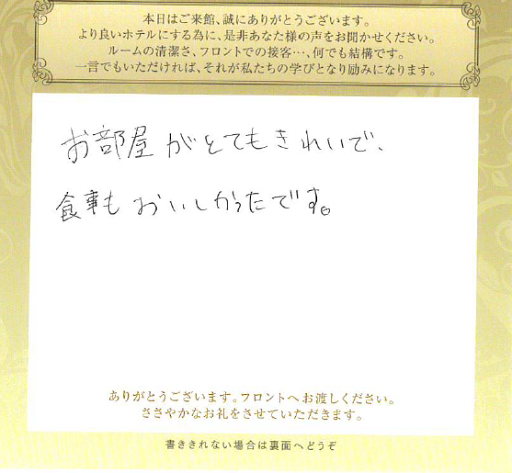 本日はご来館、誠にありがとうございます。
より良いホテルにする為に、是非あなた様の声をお聞かせください。
ルームの清潔さ、フロントでの接客…、何でも結構です。
一言でもいただければ、それが私たちの学びとなり励みになります。
お部屋がとてもきれいで、
食事もおいしかったです。
ありがとうございます。フロントへお渡しください。
ささやかなお礼をさせていただきます。
書ききれない場合は裏面へどうぞ